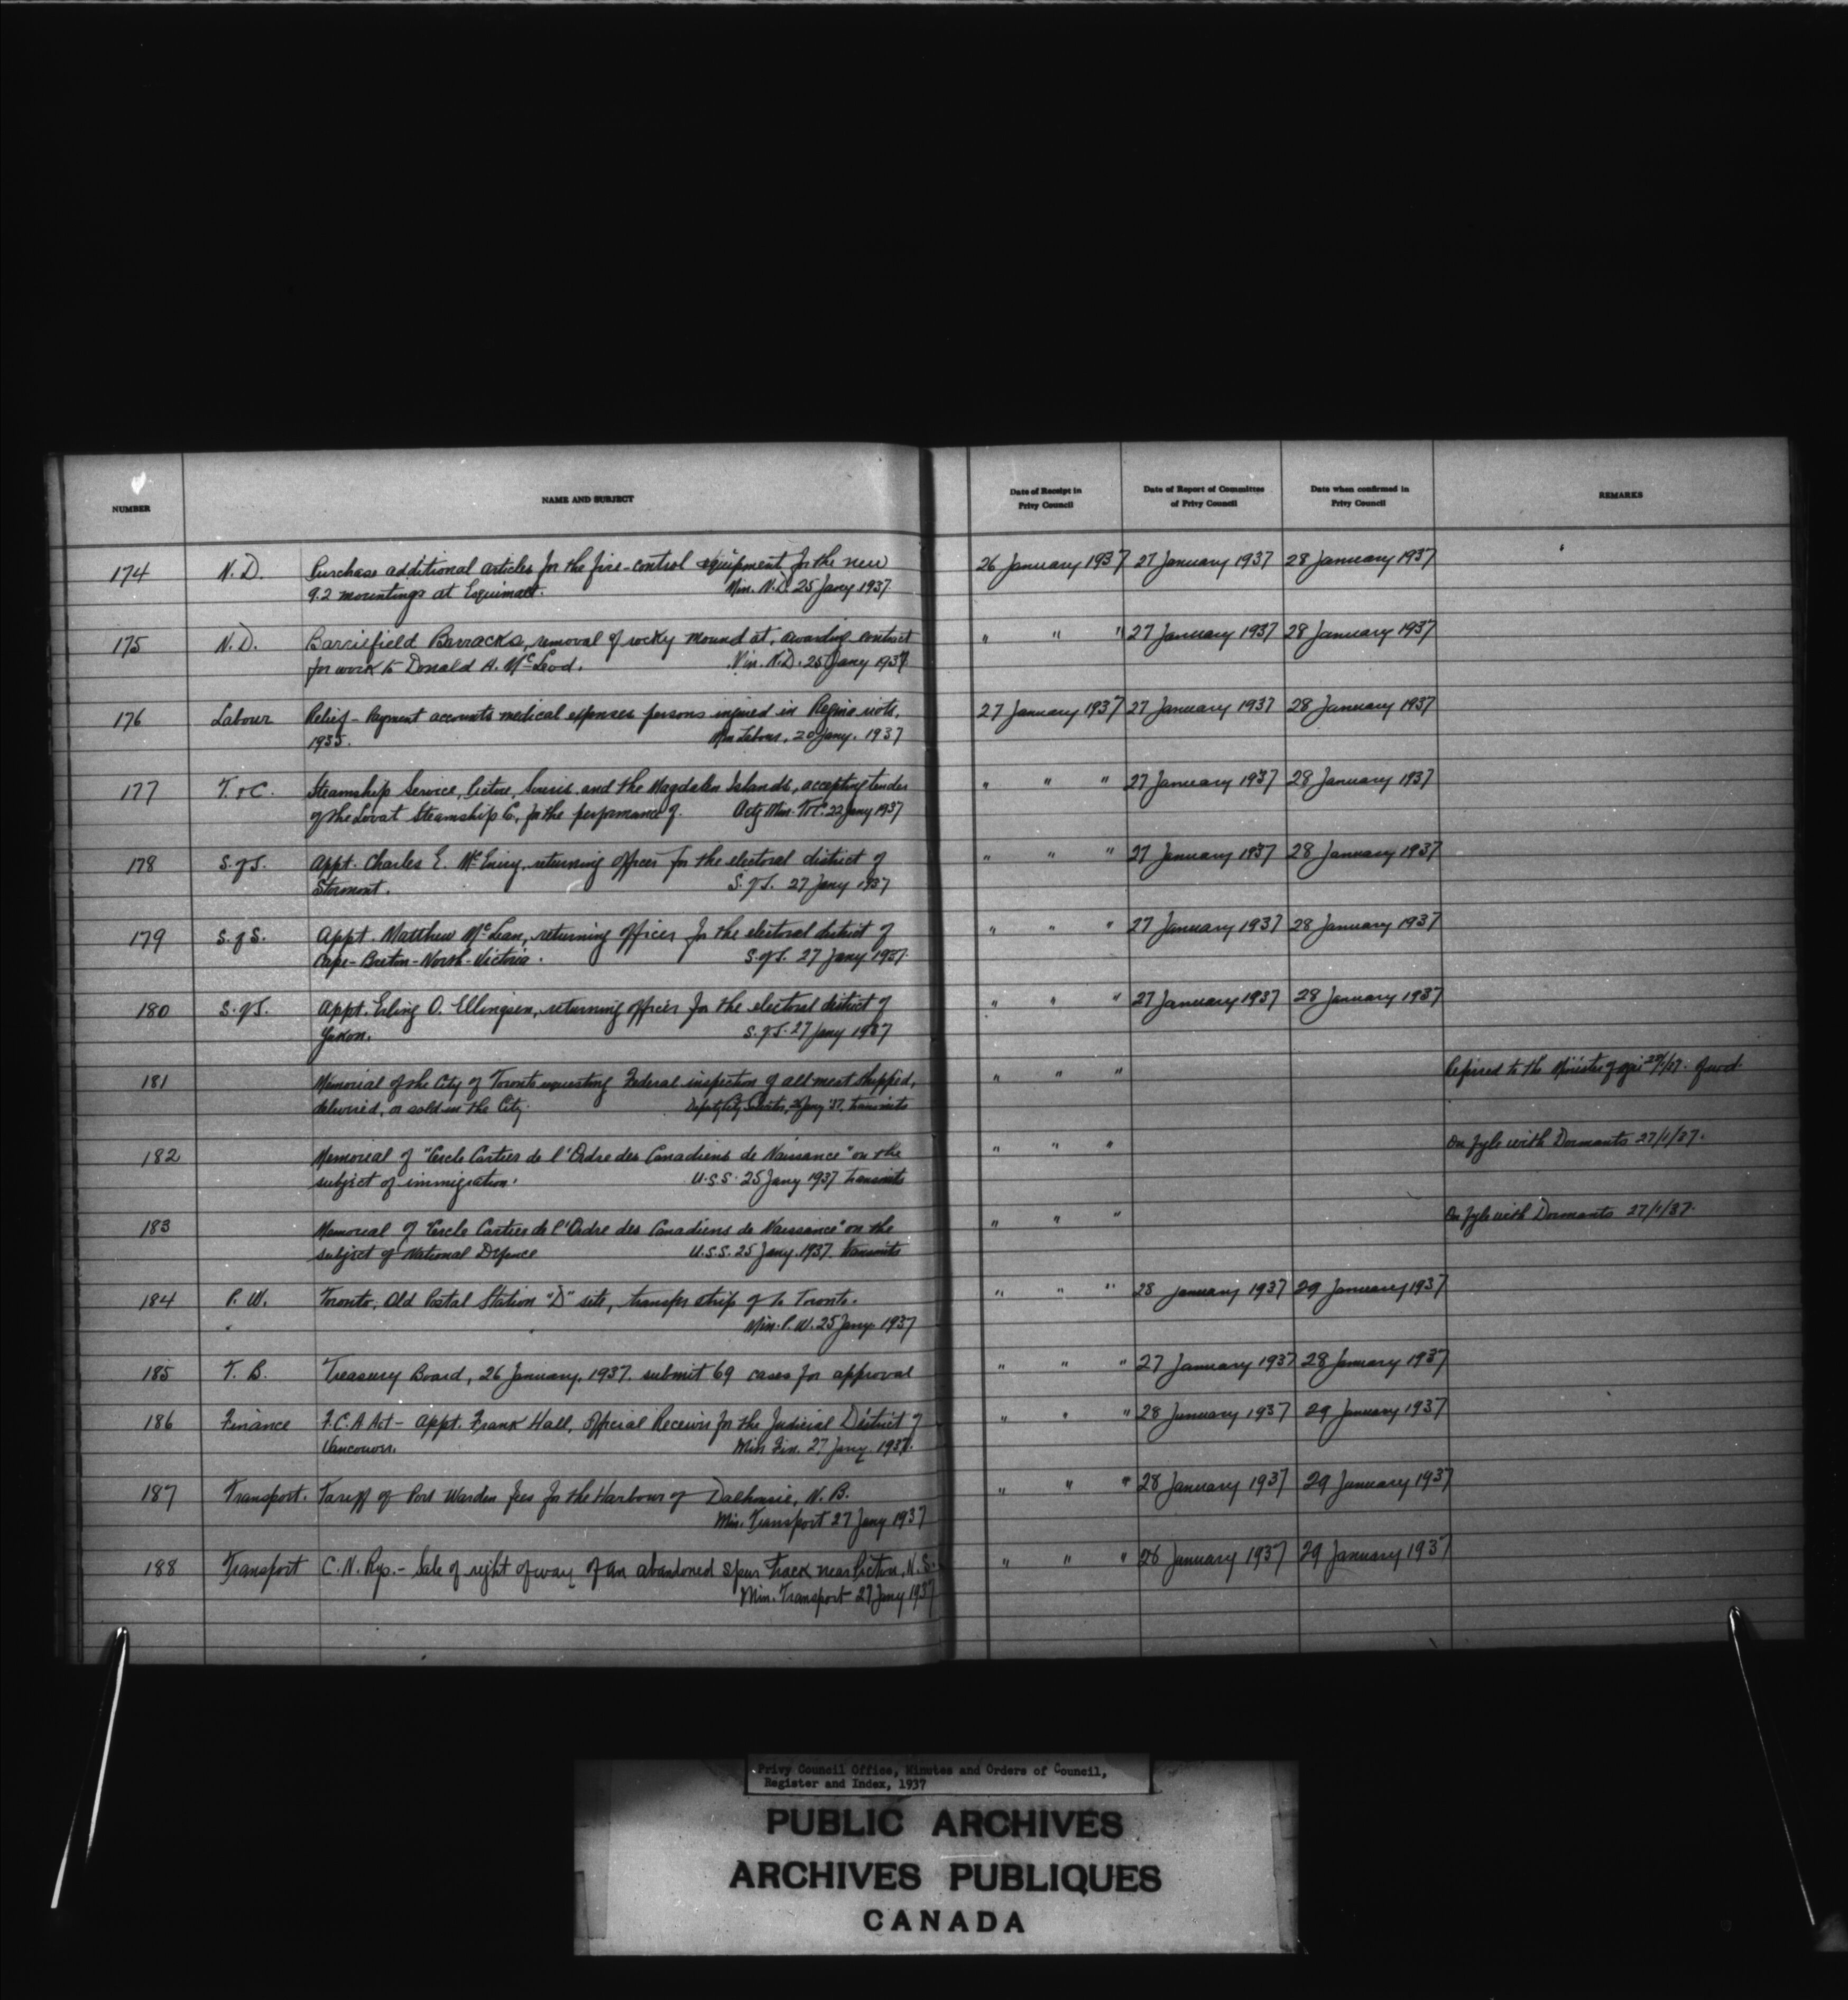 NUMBER NAME AND SUBJECT Date of Receipt in Privy Council Date of Report of Committee of Privy Council Date when confirmed in Privy Council REMARKS
174 N. D. Purchase additional articles for the fire-control equipment for the new 26 January 1937 27 January 1937 28 January 1937
9.2 mountings at Esquimalt. Min. N.D. 25 Jany 1937.
175 N. D. Barriefield Barracks, removal of rocky mound at, awarding contract " " " 27 January 1937 28 January 1937
for work to Donald A. McLeod. Min. N.D. 25 Jany 1937.
176 Labour Relief - Payment accounts medical expenses persons injured in Regina riots, 27 January 1937 27 January 1937 28 January 1937
1935. Min Labour, 20 Jany. 1937
177 T. & C. Steamship Service, Pictou, Souris and the Magdalen Islands, accepting tender " " " 27 January 1937 28 January 1937
of the Lovat Steamship Co, for the performance of. Actg Min. T&C. 22 Jany 1937
178 S. of S. Appt. Charles E. McEniry, returning officer for the electoral district of " " " 27 January 1937 28 January 1937
Stormont. S. of S. 27 Jany 1937
179 S. of S. Appt. Matthew McLean, returning officer for the electoral district of " " " 27 January 1937 28 January 1937
Cape-Breton-North-Victoria. S. of S. 27 Jany 1937.
180 S. of S. Appt. Erling O. Ellingsen, returning officer for the electoral district of " " " 27 January 1937 28 January 1937
Yukon. S. of S. 27 Jany 1937
181 Memorial of the City of Toronto requesting Federal inspection of all meat shipped, " " " Referred to the Minister of Agri
delivered, or sold in the City. Deputy City 26 Jany '37. transmits
182 Memorial of "Cercle Cartier de l'Ordre des Canadiens de Naissance" on the " " " On fyle with Dormants 27/1/37.
subject of immigration. U.S.S. 25 Jany 1937 transmits
183 Memorial of "Cercle Cartier de l'Ordre des Canadiens de Naissance" on the " " " On fyle with Dormants 27/1/37.
subject of National Defence U.S.S. 25 Jany. 1937. transmits
184 P. W. Toronto, Old Postal Station "D" site, transfer strip of to Toronto. " " " 28 January 1937 29 January 1937
Min. P. W. 25 Jany. 1937
185 T. B. Treasury Board, 26 January, 1937. submit 69 cases for approval " " " 27 January 1937 28 January 1937
186 Finance F.C.A Act - Appt. Frank Hall, Official Receiver for the Judicial District of " " " 28 January 1937 29 January 1937
Vancouver. Min Fin. 27 Jany. 1937.
187 Transport. Tariff of Port Warden fees for the Harbour of Dalhousie, N. B. " " " 28 January 1937 29 January 1937
Min. Transport 27 Jany 1937
188 Transport C. N. Rys. - Sale of right of way of an abandoned spur track near Pictou, N.S. " " " 26 January 1937 29 January 1937
Min. Transport 27 Jany 1937
Privy Council Office, Minutes and Orders of Council,
Register and Index, 1937
PUBLIC ARCHIVES
ARCHIVES PUBLIQUES
CANADA